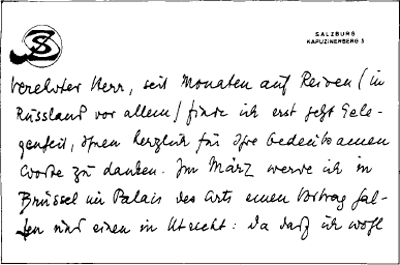 SZ
SALZBURG
KAPUZINERBERG 5
Verehrter Herr, seit Monaten auf Reisen (in
Russland vor allem) finde ich erst jetzt Gele-
genheit, Ihnen herzlich für Ihre gedenksamen
Worte zu danken. Im März werde ich in
Brüssel im Palais des Arts einen Vortrag hal-
ten und einen in Utrecht: da darf ich wohl